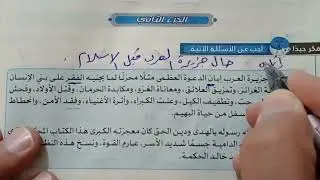 الجزء الثاني
فكر جيدًا أجب عن الأسئلة الآتية
حال جزيرة العرب قبل الإسلام
جزيرة العرب إبان الدعوة العظمى مثلًا محزنًا لما يجنيه الفقر على بني الإنسان
الغرائز، وتمزيق العلائق، ومعاناة الغزو، ومكابدة الحرمان، وقتل الأولاد، وفحش
حت، وتطفيف الكيل، وعنت الكبراء، وأثرة الأغنياء، وفقد الأمن، وانحطاط
رسوله بالهدى ودين الحق كان معجزته الكبرى هذا الكتاب
الدامية جسمًا شديد الأسر، عارم القوة، ونسخ هذه
خالد الحكمة.